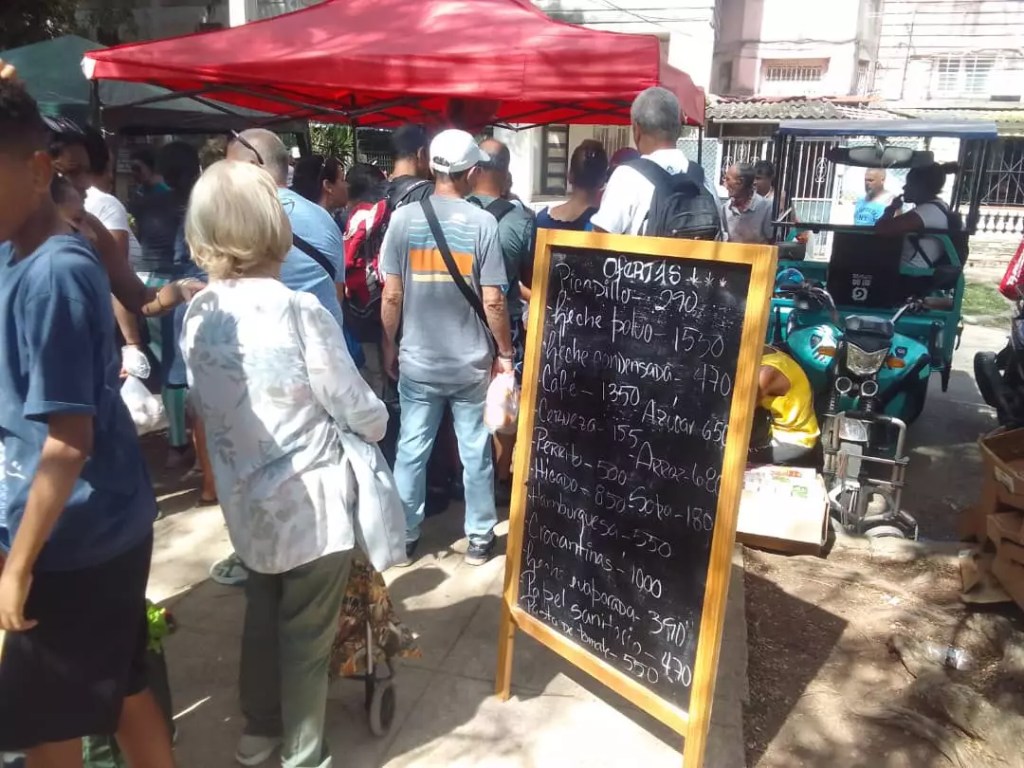 OFERTAS ***
Picadillo - 290
Leche polvo - 1550
Leche condensada - 470
Café - 1350
Azúcar 650
Cerveza - 155
Arroz - 680
Perrito - 500
Hígado - 850
Sopa - 180
Hamburguesa - 550
Crocantinas - 1000
Leche evaporada - 390
Papel sanitario - 470
Pasta de tomate - 550